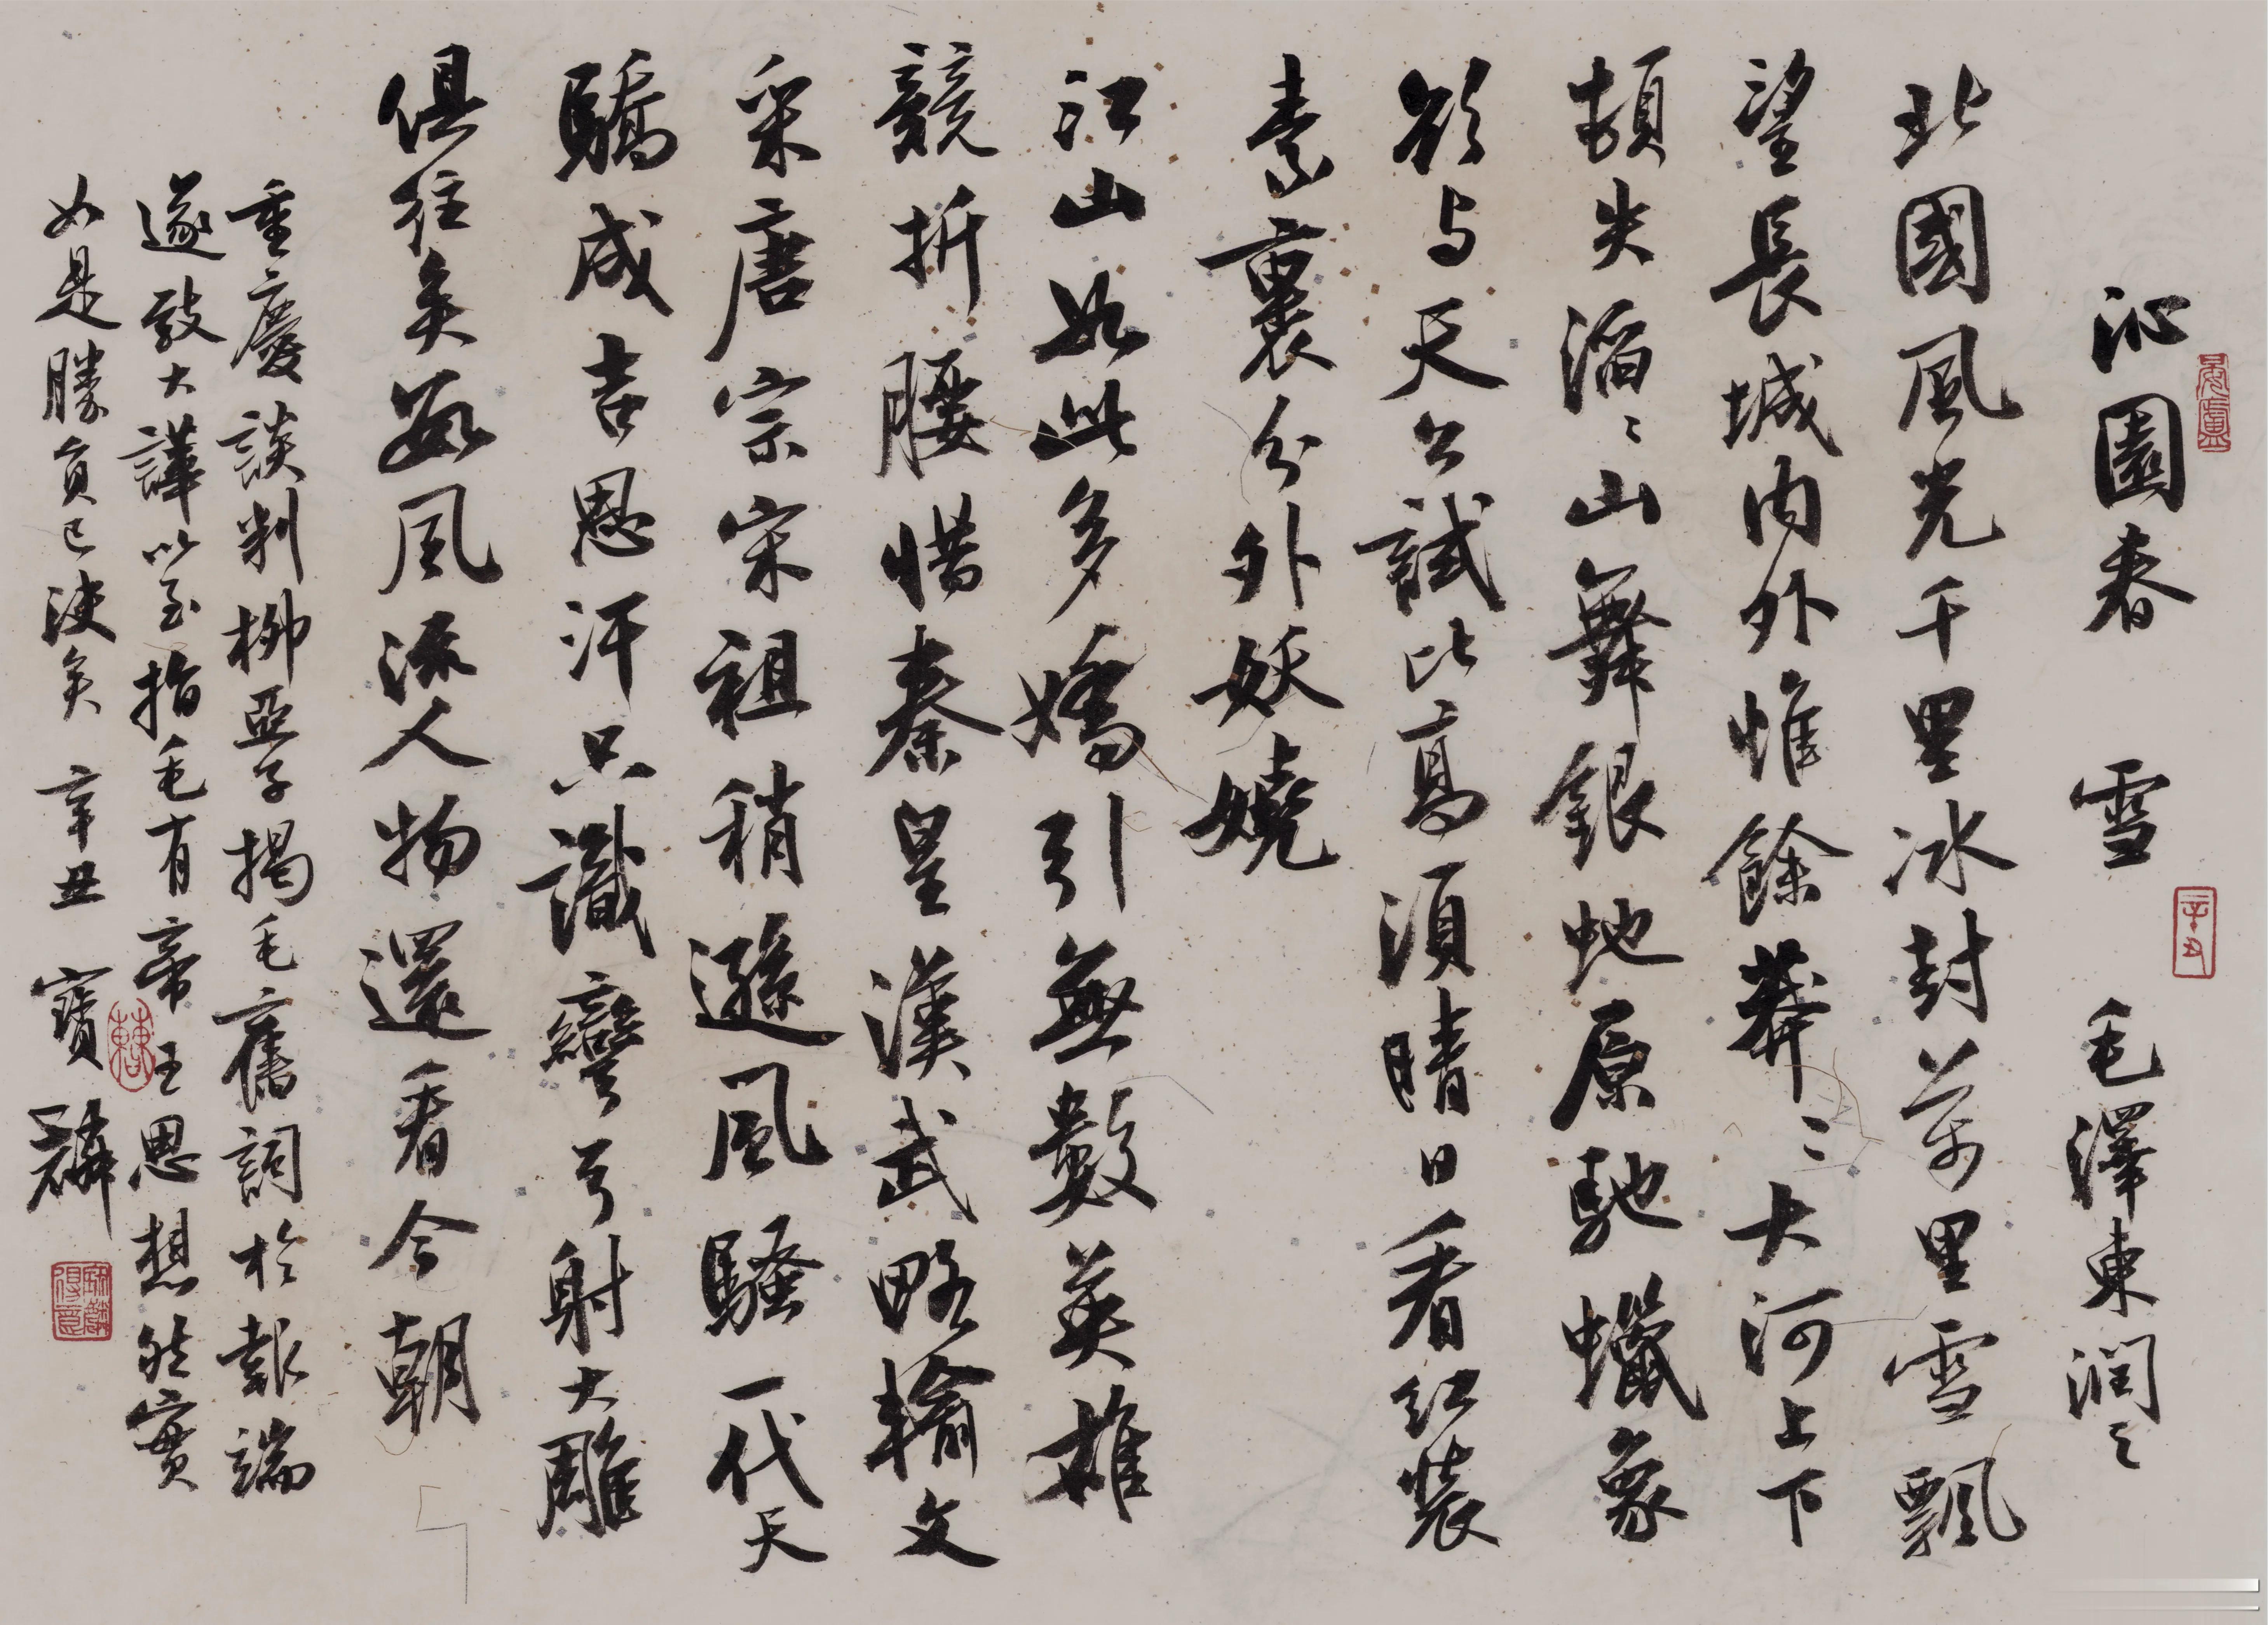 沁園春 雪 毛澤東潤之
北國風光千里冰封萬里雪飄
望長城內外惟餘莽〻大河上下
頓失滔〻山舞銀虵原馳蠟象
欲与天公試比高須晴日看紅裝
素裹分外妖嬈
江山如此多嬌引無數英雄
競折腰惜秦皇漢武略輸文
采唐宗宋祖稍遜風騷一代天
驕成吉思汗只識彎弓射大雕
俱往矣數風流人物還看今朝
重慶談判柳亞子揭毛舊詞於報端
遂致大譁以至指毛有帝王思想然實
如是勝負已決矣 辛丑 寶麟
辛丑